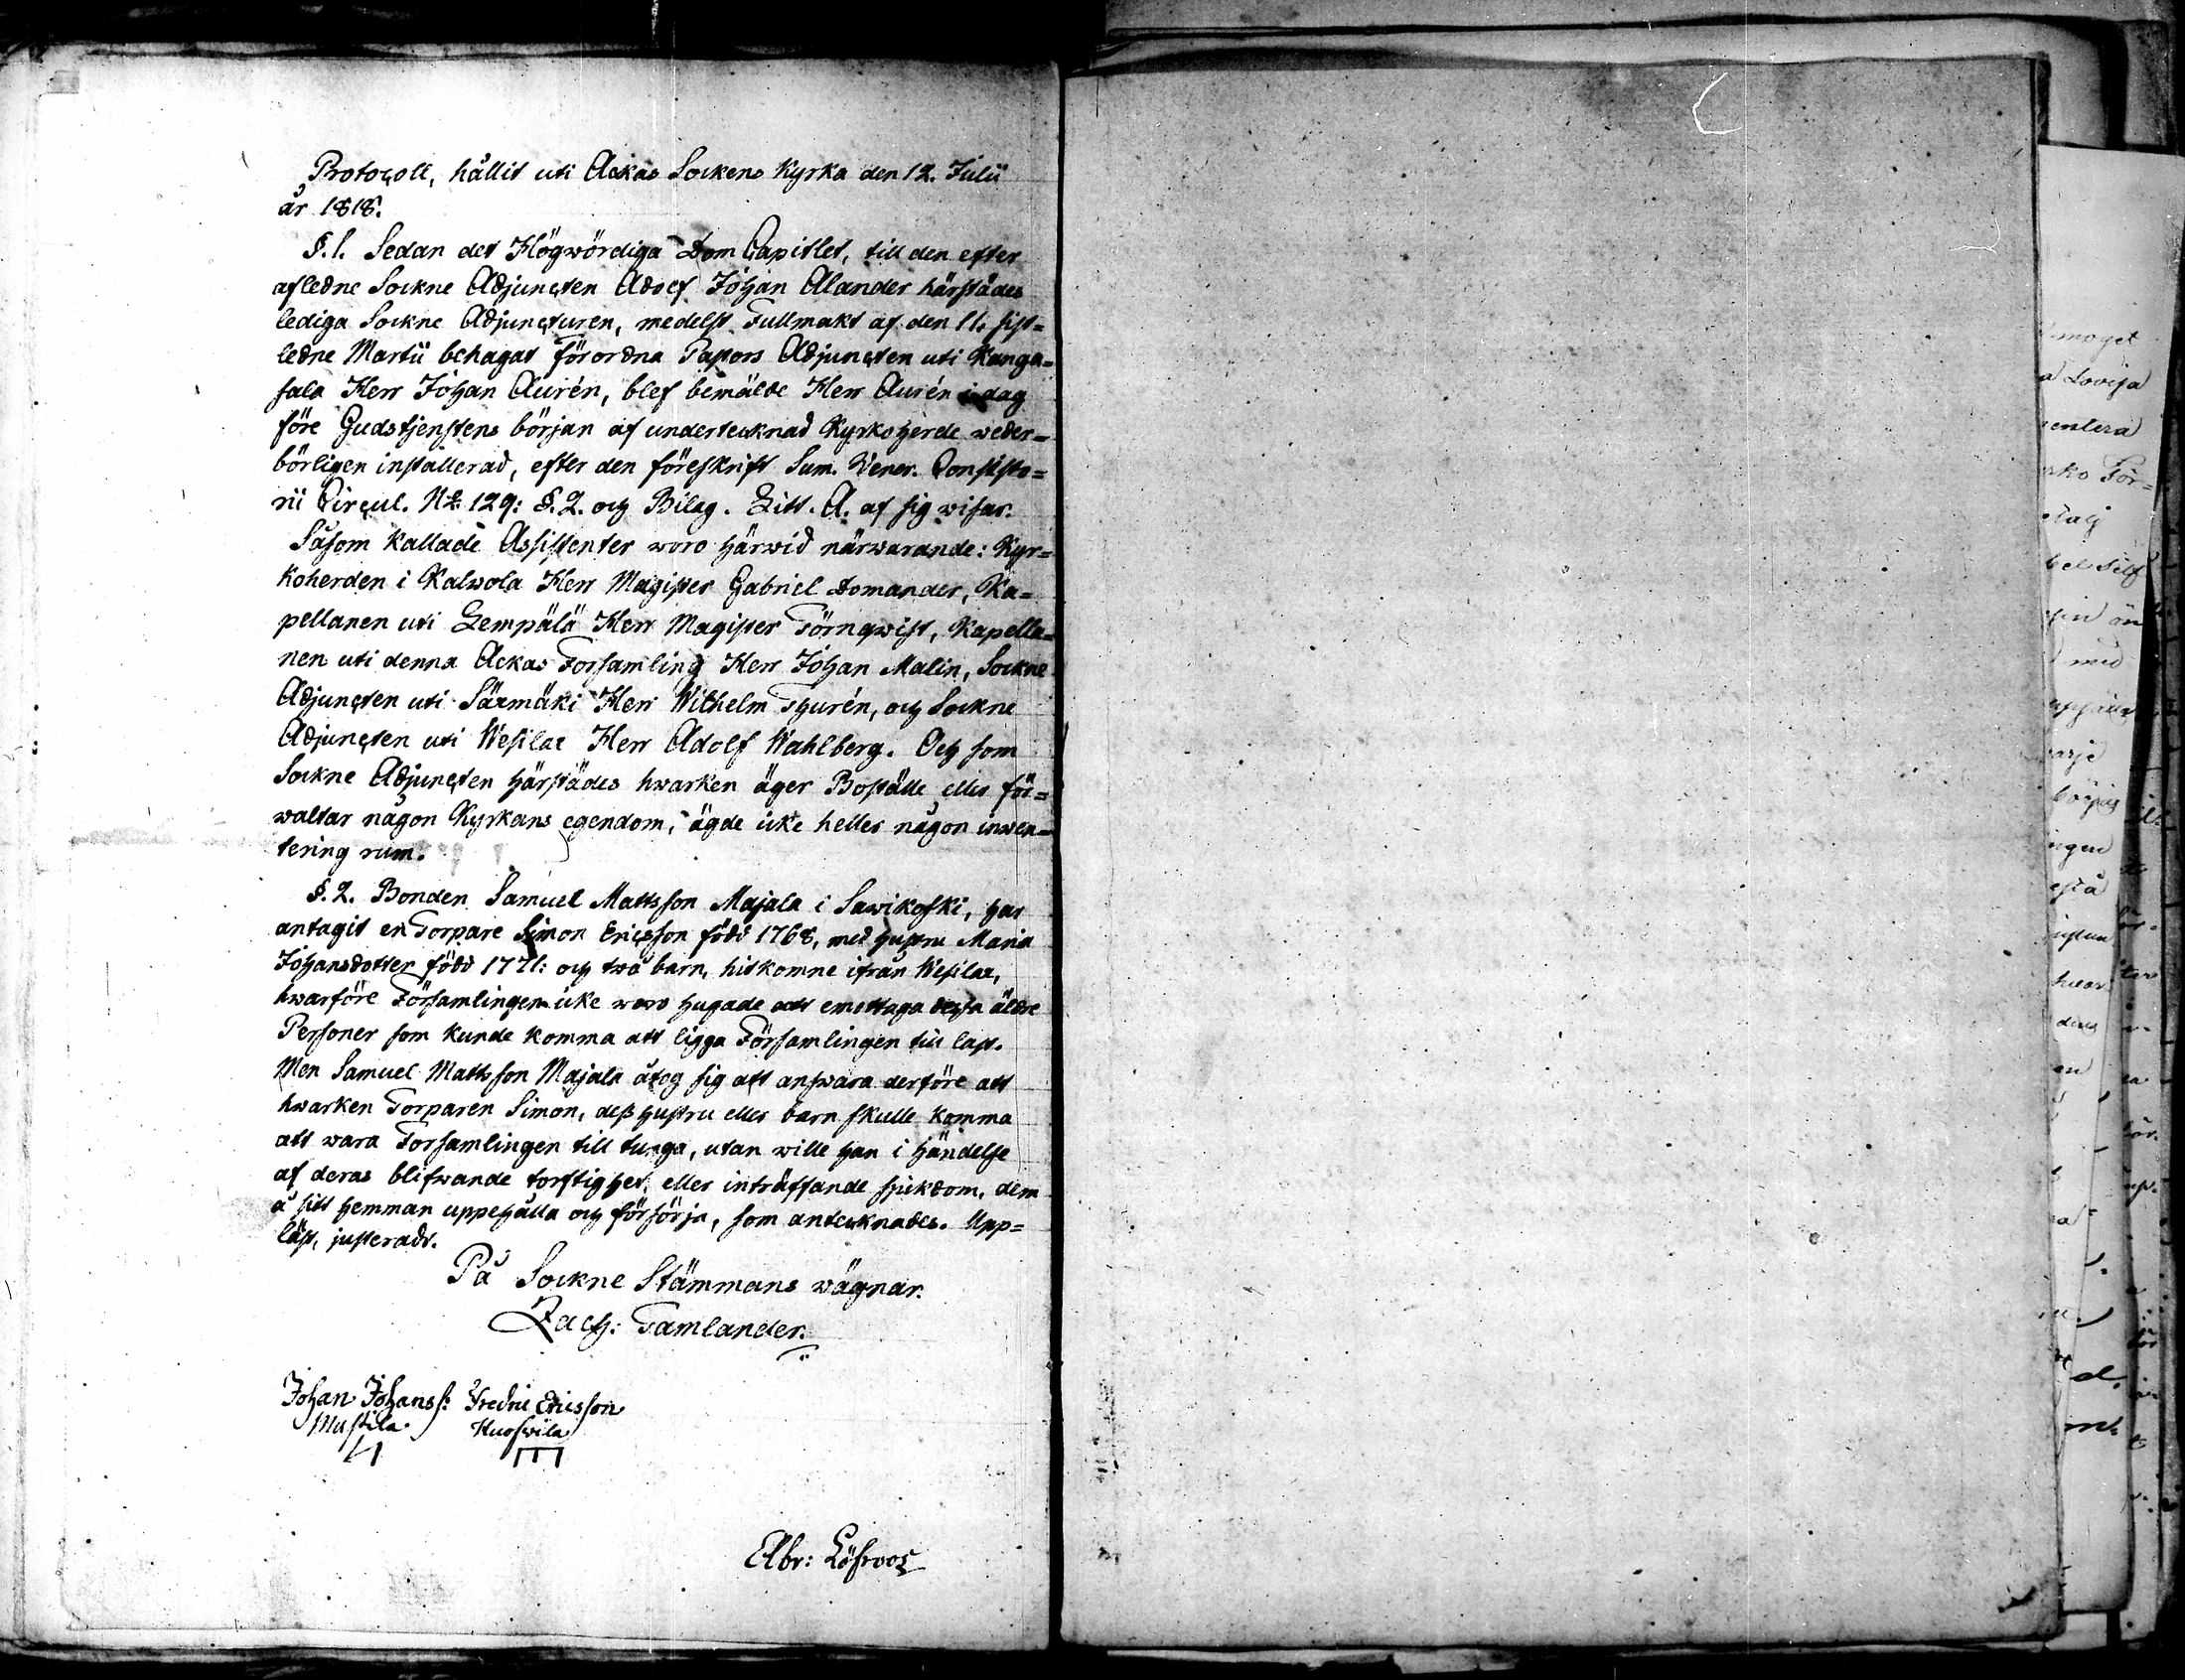 Protocoll, hållit uti Ackas Sockens Kyrka den 12. Julii
år 1818.
§. 1. Sedan det Högwördiga Dom Capitlet, till den efter
aflednе Sockne Adjuncten Adolf Johan Alander härstädes
lediga Sockne Adjuncturen, medelst Fullmakt af den 11. sist=
ledne Martii behagat förordna Pastors Adjuncten uti Kanga=
sala Herr Johan Aurén, blef bemälde Herr Aurén i dag
före Gudstjenstens början af undertecknad Kyrkoherde weder=
börligen installerad, efter den föreskrift Sum. Vener. Consisto=
rii Circul. No. 129: §. 2. och Bilag. Litt. A. af sig wisar.
Såsom kallade Assistenter woro härwid närwarande: Kyr=
koherden i Kalwola Herr Magister Gabriel Domander, Ka=
pellanen uti Lempälä Herr Magister Törnqwist, Kapella=
nen uti denna Ackas Forsamling Herr Johan Malin, Sockne
Adjuncten uti Säxmäki Herr Wilhelm Thurén, och Sockne
Adjuncten uti Wesilax Herr Adolf Wahlberg. Och som
Sockne Adjuncten härstädes hwarken äger Boställe eller för=
waltar någon Kyrkans egendom, ägde icke heller någon inwen=
tering rum.
§. 2. Bonden Samuel Mattsson Majala i Sawikoski, har
antagit en Torpare Simon Ericsson född 1768, med hustru Maria
Johansdotter född 1771: och twå barn, hitkomne ifrån Wesilax,
hwarföre Församlingen icke woro hugade att emottaga dessa äldre
Personer som kunde komma att ligga Församlingen till last.
Men Samuel Mattsson Majala åtog sig att answara derföre att
hwarken Torparen Simon, dess hustru eller barn skulle komma
att wara Forsamlingen till tunga, utan wille han i händelse
af deras blifwande torftighet, eller inträffande sjukdom, dem
å sitt hemman uppehålla och försörja, som antecknades. Upp=
läst, justeradt.
På Sockne Stämmans wägnar.
Zach: Tamlander.
Johan Johanss: Fredric Ericsson
Mustila Huoswila
Abr: Löfroos